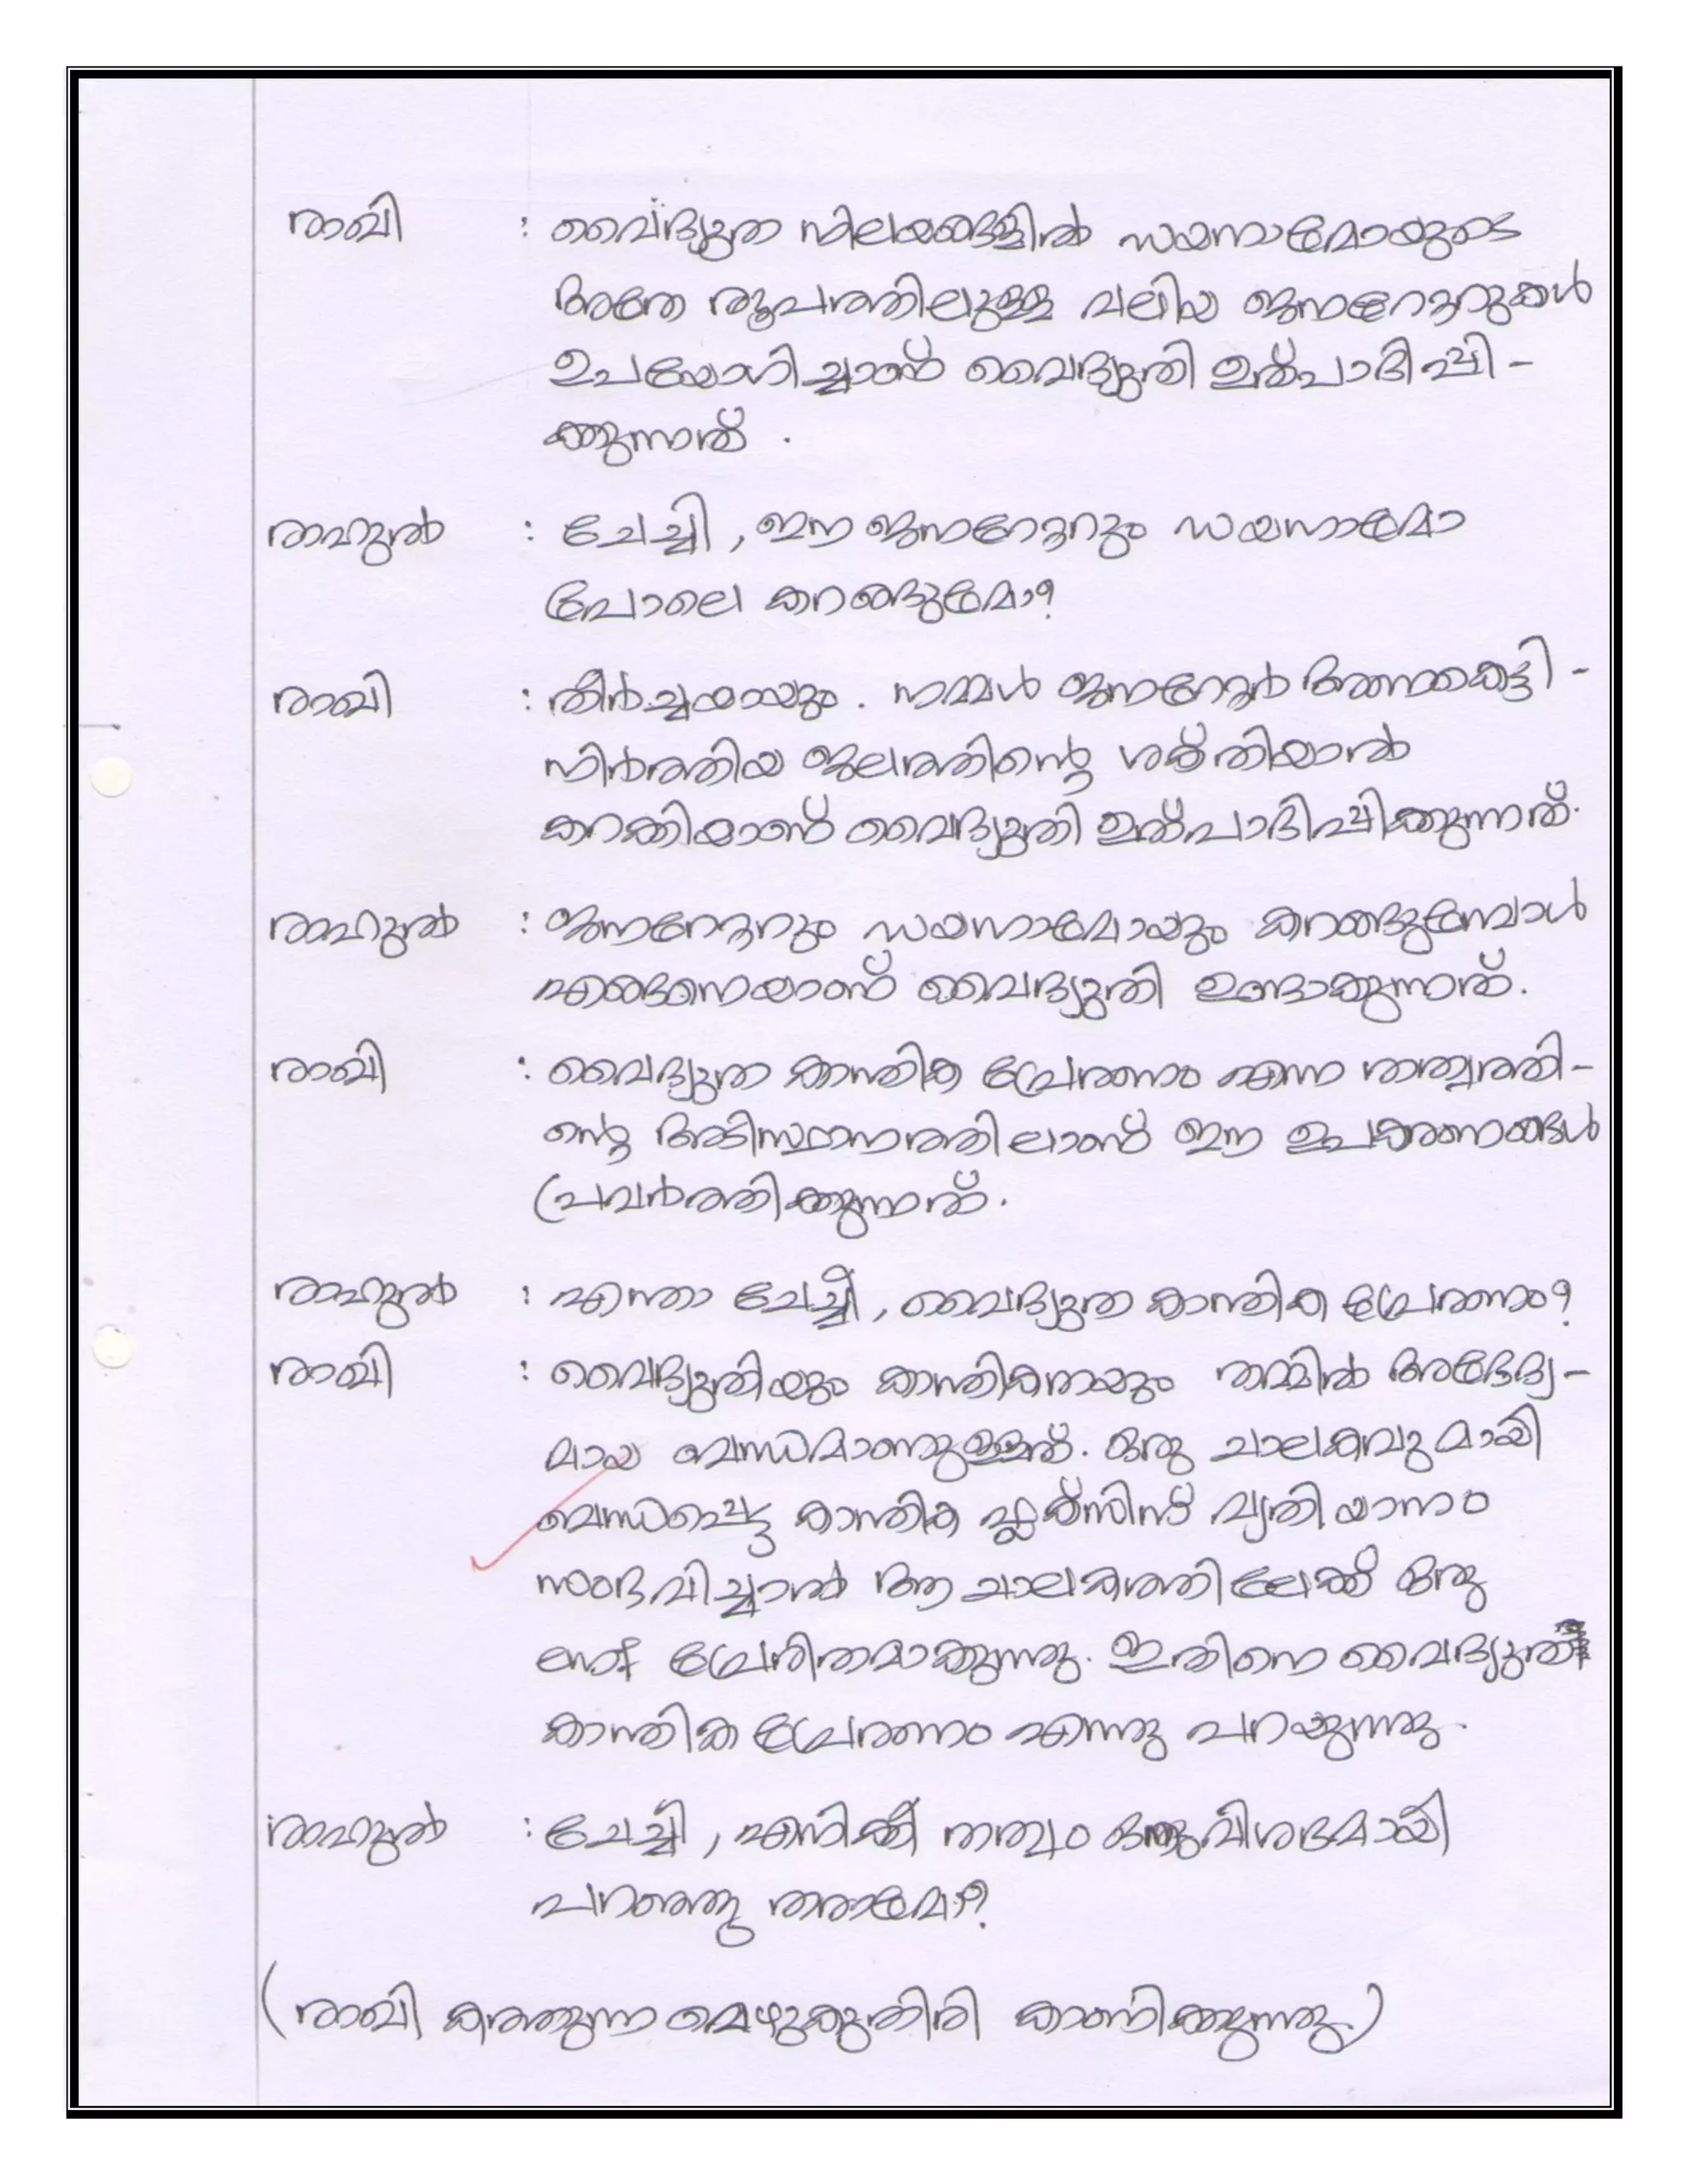 രാഖി : വൈദ്യുത നിലയങ്ങളിൽ ഡയനാമോയുടെ
അതേ രൂപത്തിലുള്ള വലിയ ജനറേറ്ററുകൾ
ഉപയോഗിച്ചാണ് വൈദ്യുതി ഉത്പാദിപ്പി -
ക്കുന്നത് .
രാഹുൽ : ചേച്ചി , ഈ ജനറേറ്ററും ഡയനാമോ
പോലെ കറങ്ങുമോ?
രാഖി : തീർച്ചയായും . നമ്മൾ ജനറേറ്റർ അണക്കെട്ടി -
നിർത്തിയ ജലത്തിന്റെ ശക്തിയാൽ
കറക്കിയാണ് വൈദ്യുതി ഉത്പാദിപ്പിക്കുന്നത്.
രാഹുൽ : ജനറേറ്ററും ഡയനാമോയും കറങ്ങുമ്പോൾ
എങ്ങനെയാണ് വൈദ്യുതി ഉണ്ടാക്കുന്നത്.
രാഖി : വൈദ്യുത കാന്തിക പ്രേരണം എന്ന തത്വത്തി -
ന്റെ അടിസ്ഥാനത്തിലാണ് ഈ ഉപകരണങ്ങൾ
പ്രവർത്തിക്കുന്നത്.
രാഹുൽ : എന്താ ചേച്ചീ , വൈദ്യുത കാന്തിക പ്രേരണം?
രാഖി : വൈദ്യുതിയും കാന്തികതയും തമ്മിൽ അഭേദ്യ -
മായ ബന്ധമാണുള്ളത്. ഒരു ചാലകവുമായി
ബന്ധപ്പെട്ട കാന്തിക ഫ്ലക്സിന് വ്യതിയാനം
സംഭവിച്ചാൽ ആ ചാലകത്തിലേക്ക് ഒരു
emf പ്രേരിതമാകുന്നു. ഇതിനെ വൈദ്യുത
കാന്തിക പ്രേരണം എന്നു പറയുന്നു.
രാഹുൽ : ചേച്ചി , എനിക്കീ തത്വം ഒന്നുവിശദമായി
പറഞ്ഞു തരാമോ?
(രാഖി കത്തുന്ന മെഴുകുതിരി കാണിക്കുന്നു.)